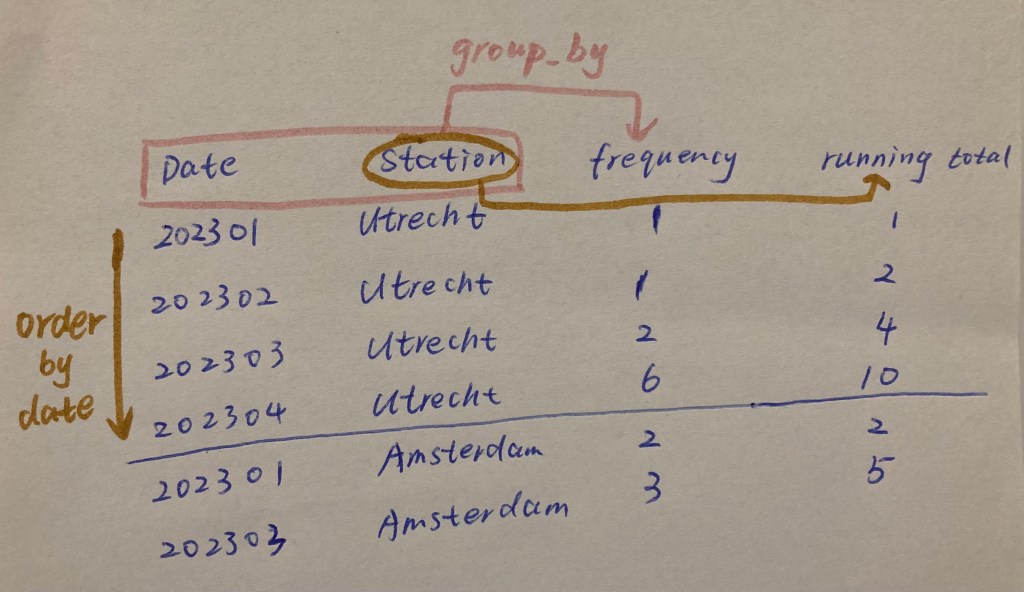 group_by
Date Station frequency running total
202301 Utrecht 1 1
202302 Utrecht 1 2
202303 Utrecht 2 4
202304 Utrecht 6 10
202301 Amsterdam 2 2
202303 Amsterdam 3 5
order
by
date